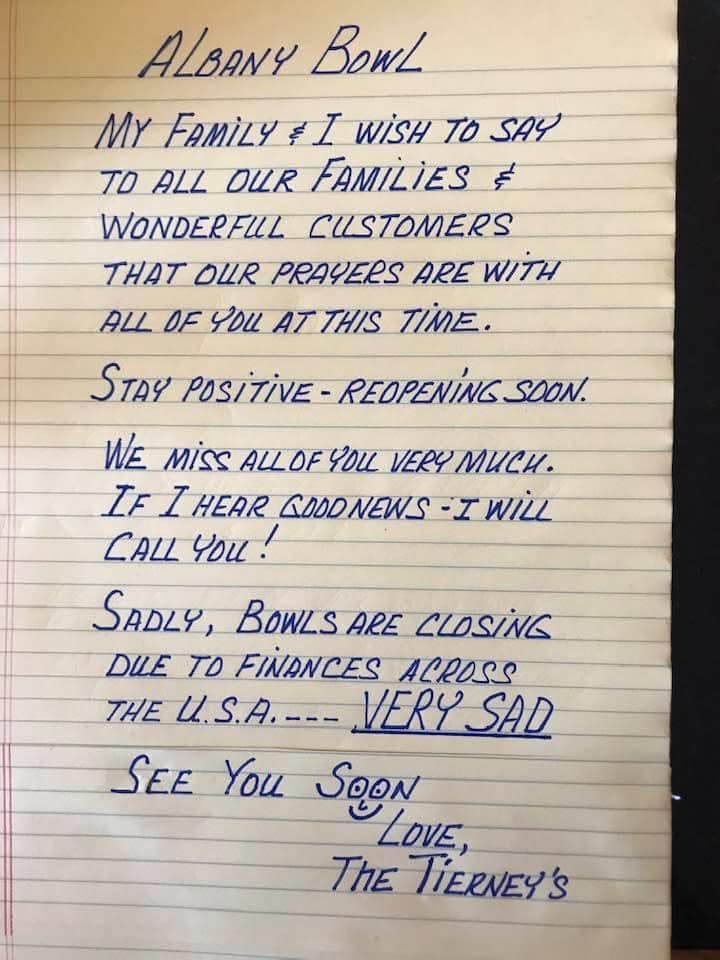 Albany Bowl
My Family & I wish to say
to all our Families &
Wonderful customers
that our prayers are with
all of you at this time.
Stay positive - reopening soon.
We miss all of you very much.
If I hear good news - I will
call you!
Sadly, Bowls are closing
due to finances across
the U.S.A. --- VERY SAD
See You Soon
Love,
The Tierney's